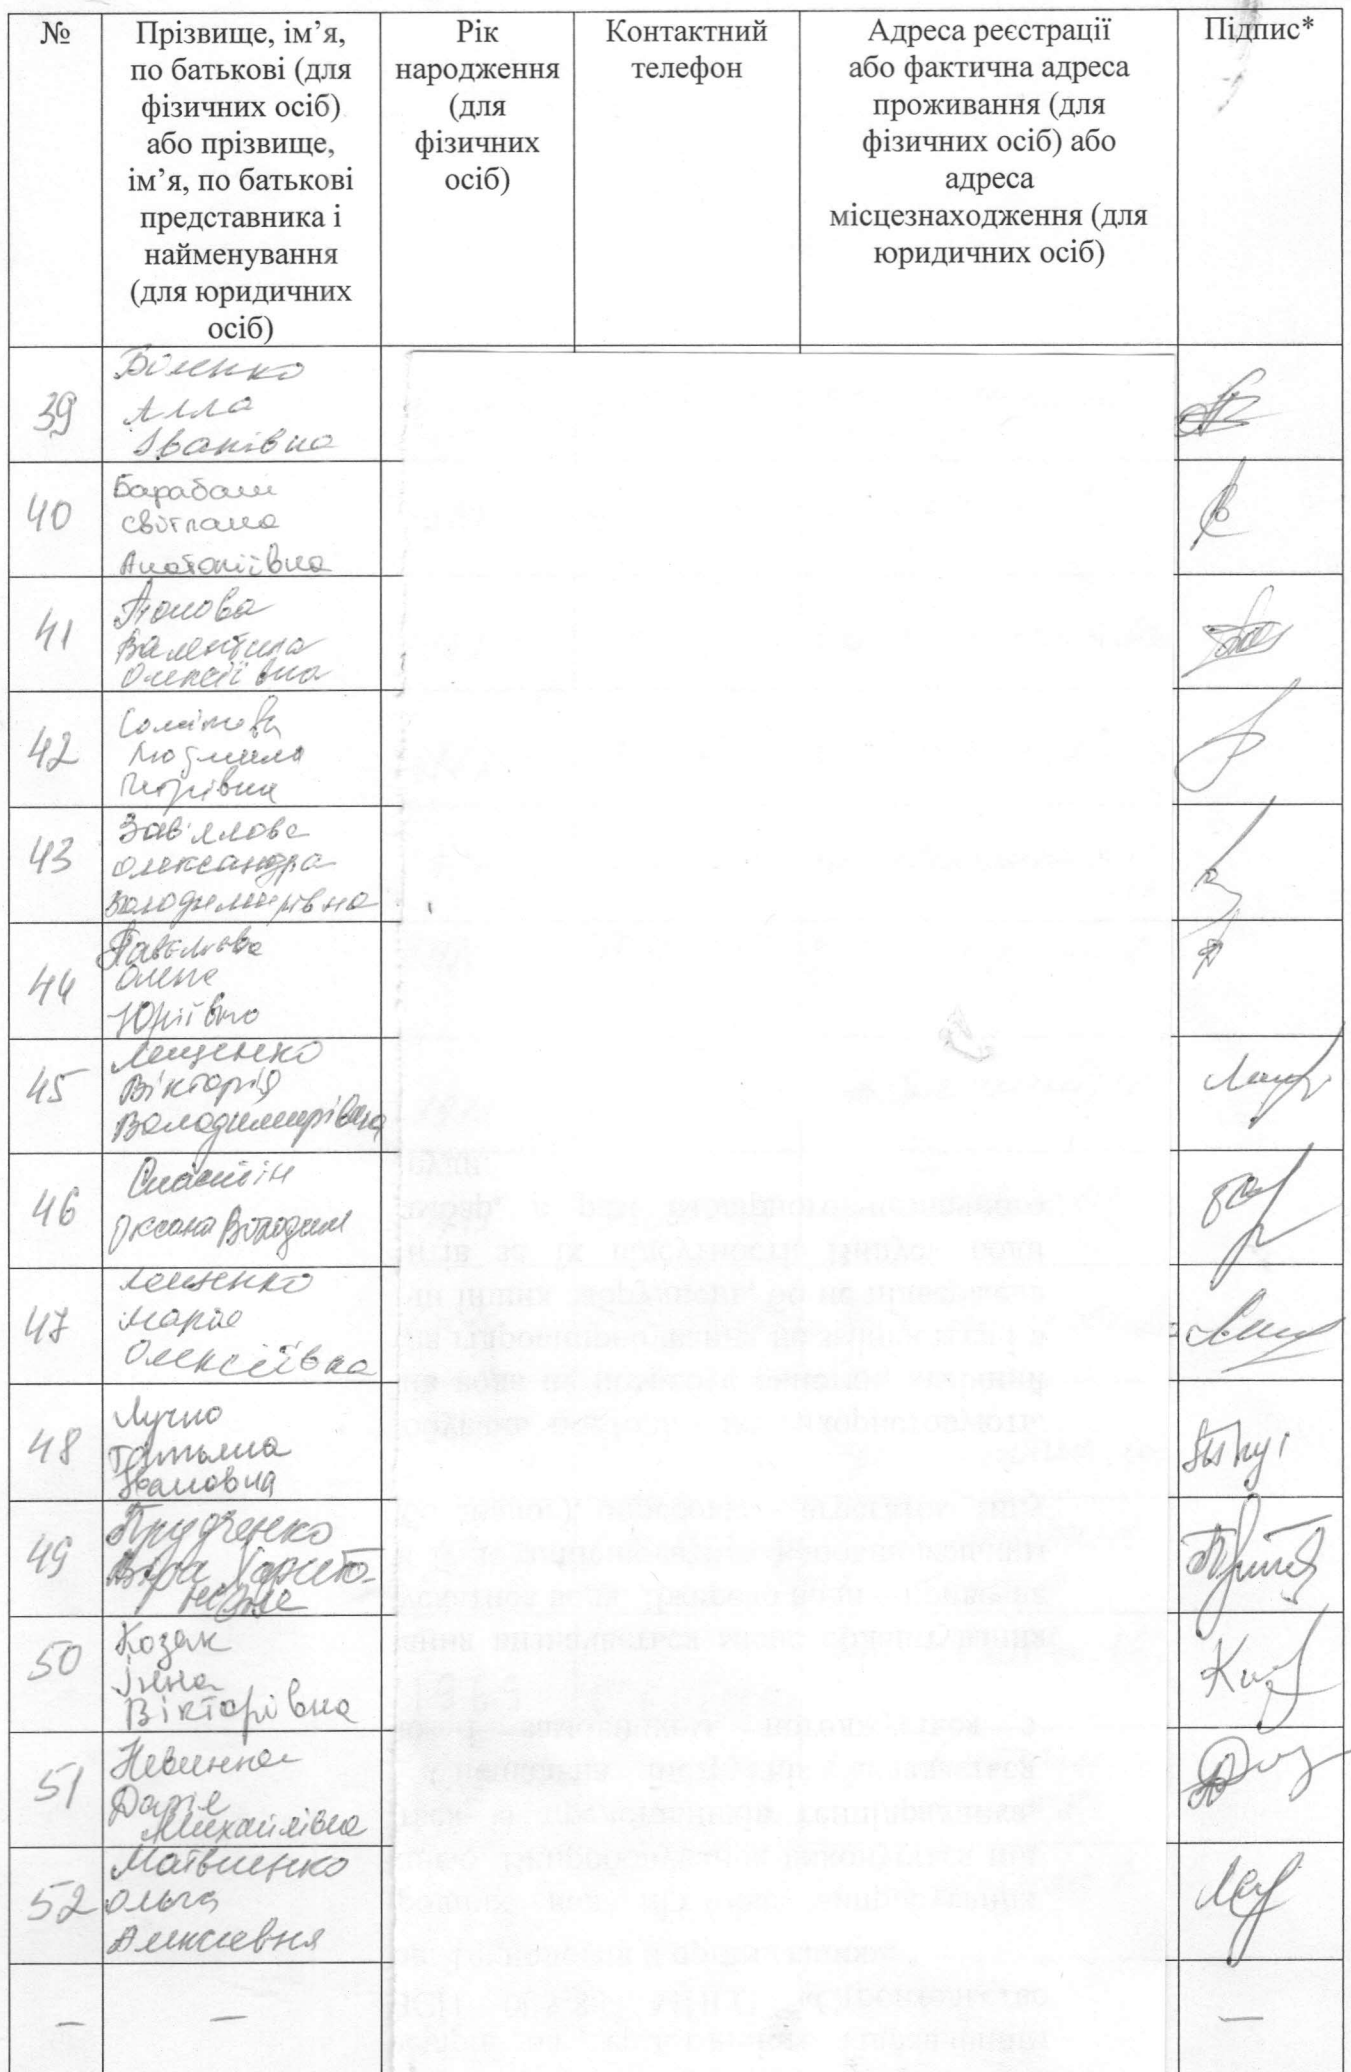 №
Прізвище, ім’я,
по батькові (для
фізичних осіб)
або прізвище,
ім’я, по батькові
представника і
найменування
(для юридичних
осіб)
Рік
народження
(для
фізичних
осіб)
Контактний
телефон
Адреса реєстрації
або фактична адреса
проживання (для
фізичних осіб) або
адреса
місцезнаходження (для
юридичних осіб)
Підпис*
39
Біленко
Алла
Іванівна
40
Барабаш
Світлана
Анатоліївна
41
Попова
Валентина
Олексіївна
42
Людмила
Петрівна
43
Зав'ялова
Олександра
Володимирівна
44
Олена
Юріївна
45
Лещенко
Вікторія
Володимирівна
46
Оксана Володим
47
Лещенко
Марія
Олексіївна
48
Лучко
Татьяна
Ивановна
49
Прудченко
Віра
50
Козак
Інна
Вікторівна
51
Невинна
Дарія
Михайлівна
52
Матвиенко
Ольга
Алексеевна
— — —